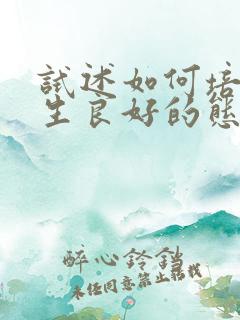 試述如何培
生良好的態
醉心鈴鐺
未经同意禁止转载